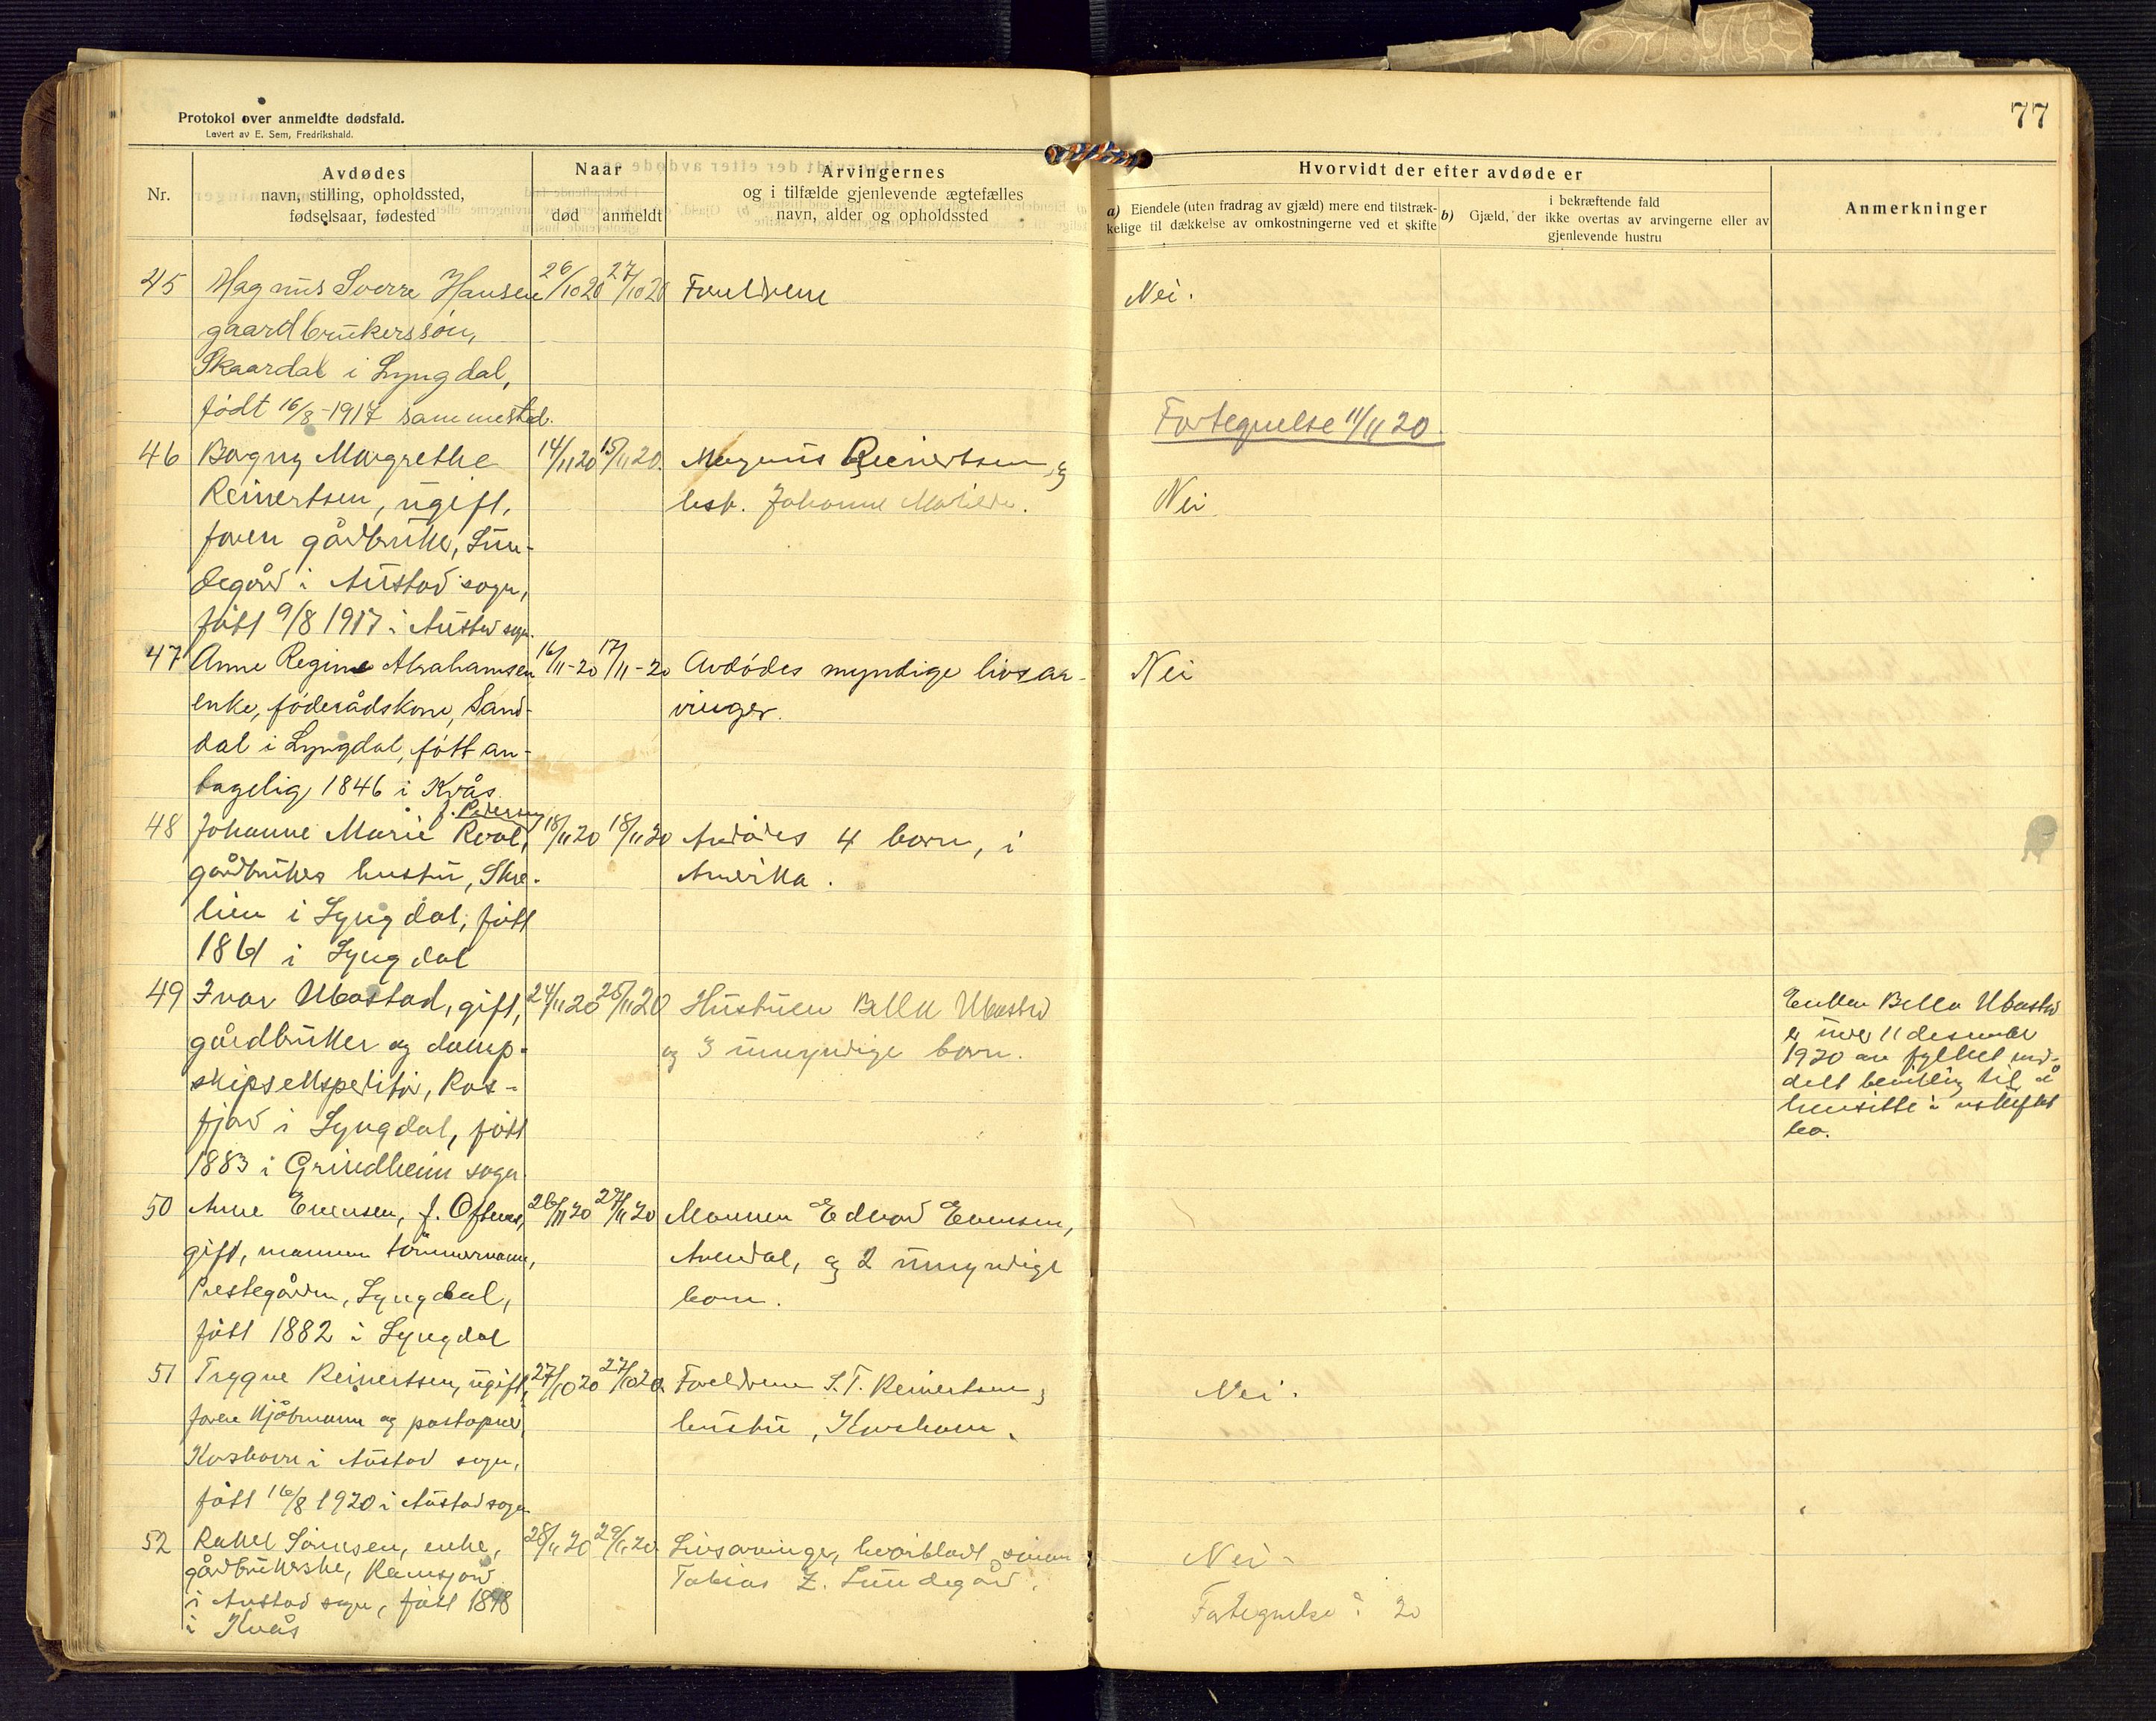 77
Protokol over anmeldte dødsfald.
Levert av E. Sem, Fredrikshald.
Nr.
Avdødes
navn, stilling, opholdssted,
fødselsaar, fødested
Naar
død
anmeldt
Arvingernes
og i tilfælde gjenlevende ægtefælles
navn, alder og opholdssted
Hvorvidt der efter avdøde er
a) Eiendele (uten fradrag av gjæld) mere end tilstræk-
kelige til dækkelse av omkostningerne ved et skifte
i bekræftende fald
b) Gjæld, der ikke overtas av arvingerne eller av
gjenlevende hustru
Anmerkninger
45 Magnus Sverre Hansen 26/10 20 27/10 20 Foreldrene Nei.
gaardbrukerssøn,
Skaardal i Lyngdal,
født 16/8-1917 sammested.
Fortegnelse 11/11 20.
46 Borgny Margrethe 14/11 20 15/11 20. Magnus Reinertsen og
Reinertsen, ugift, hst. Johanne Matilde. Nei
faren gårdbruker, Lun-
degård i Austad sogn,
født 9/8 1917 i Austad sogn.
47 Anne Regine Abrahamsen 16/11-20 17/11-20 Avdødes myndige livsar- Nei
enke, føderådskone, Sand- vinger.
dal i Lyngdal, født an-
tagelig 1846 i Kvås.
f. Pedersen
48 Johanne Marie Revøl, 18/11 20 18/11 20 Avdødes 4 born, i
gårdbrukers hustru, Skre- Amerika.
lien i Lyngdal, født
1861 i Lyngdal
49 Ivar Ubostad, gift, 24/11 20 25/11 20 Hustruen Bella Ubostad
gårdbruker og damp- og 3 umyndige born.
skipsekspeditør, Ros-
fjord i Lyngdal, født
1883 i Grindheim sogn.
Enken Bella Ubostad
er under 11 desember
1920 av fylket med-
delt bevilling til å
hensitte i uskiftet
bo.
50 Anne Evensen, f. Oftenes, 26/11 20 27/11 20 Mannen Edvard Evensen,
gift, mannen tømmermann, Arendal, og 2 umyndige
Prestegården, Lyngdal, born.
født 1882 i Lyngdal
51 Trygve Reinertsen, ugift, 27/10 20 27/10 20. Foreldrene S.T. Reinertsen og Nei.
faren kjøbmann og postopner, hustru, Korshavn.
Korshavn i Austad sogn,
født 16/8 1920 i Austad sogn
52 Rakel Tønnesen, enke, 28/11 20 29/11 20. Livsarvinger, hvoriblandt sønnen Nei
gårdbrukerske, Ramsfjord Tobias Z. Lundegård.
i Austad sogn, født 1848 Fortegnelse 20
i Kvås